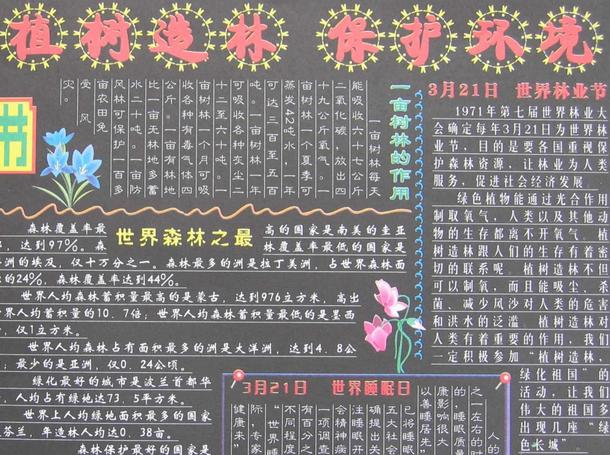 植树造林 保护环境
书
一亩树林的作用
一亩树林每天
能吸收六十七公斤
二氧化碳，放出四
十九公斤氧气。一
亩树林一个夏季可
蒸发42吨水，一年
可达三百至五百
吨。一亩树林一年
可吸收各种灰尘二
十二至六十吨。一
亩树林一个月可吸
收各种有毒气体四
公斤。一亩有林地
比一亩无林地多蓄
水二十吨。亩防
风林可保护一百多
亩农田免
受风
灾。
3月21日 世界林业节
1971年第七届世界林业大
会确定每年3月21日为世界林
业节，目的是要各国重视保
护森林资源，让林业为人类
服务，促进社会经济发展。
绿色植物能通过光合作用
制取氧气，人类以及其他动
物的生存都离不开氧气。植
树造林跟人们的生存有着密
切的联系呢。植树造林不但
可以制氧，而且能吸尘、杀
菌、减少风沙对人类的危害
和洪水的泛滥。植树造林对
人类有着重要的作用，我们
一定积极参加“植树造林，
绿化祖国”的
活动，让我们
伟大的祖国多
出现几座“绿
色长城”。
世界森林之最
森林覆盖率最
高的国家是南美的圭亚
达到97%。森
林覆盖率最低的国家是
洲的埃及，仅十万分之一。森林最多的洲是拉丁美洲，占世界森林面
的24%，森林覆盖率达到44%。
世界人均森林蓄积量最高的是蒙古，达到976立方米，高出
界人均蓄积量的10.7倍；世界人均森林蓄积量最低的是墨西
，仅1立方米。
世界人均森林占有面积最多的洲是大洋洲，达到4.8公
；最少的是亚洲，仅0.24公顷。
绿化最好的城市是波兰首都华
，人均占有绿地达73.5平方米。
世界上人均绿地面积最多的国家
芬兰，年造林人均达0.38亩。
森林保护最好的国家是
3月21日 世界睡眠日
人的一
之一左右的时
的，睡眠质量
康影响很大。
以“善睡居先”
已将睡眠
五大社会
确提出关
注睡眠开
会精神病
一项调查
有百分之
不同程度
“世界睡
际，专家
健康来”